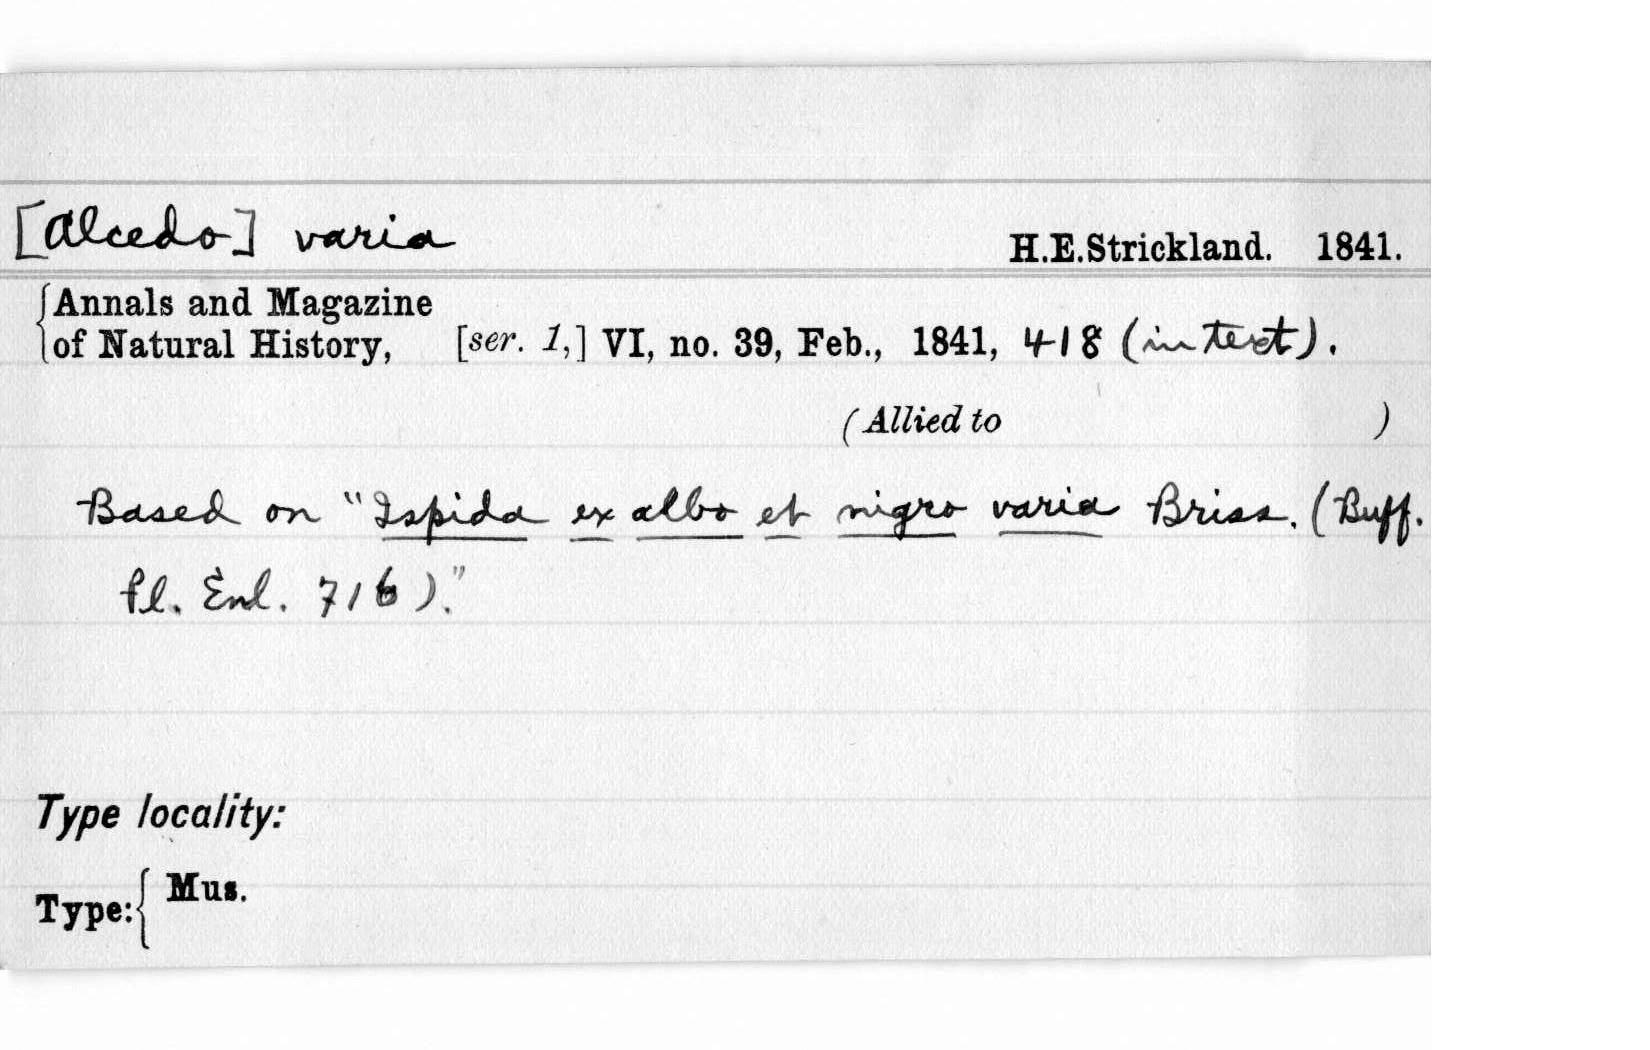 [Alcedo] varia H.E.Strickland. 1841.
Annals and Magazine
of Natural History, [ser. 1,] VI, no. 39, Feb., 1841, 418 (in text).
(Allied to )
Based on "Ispida ex albo et nigro varia Briss. (Buff.
Pl. Enl. 716)."
Type locality:
Type: Mus.